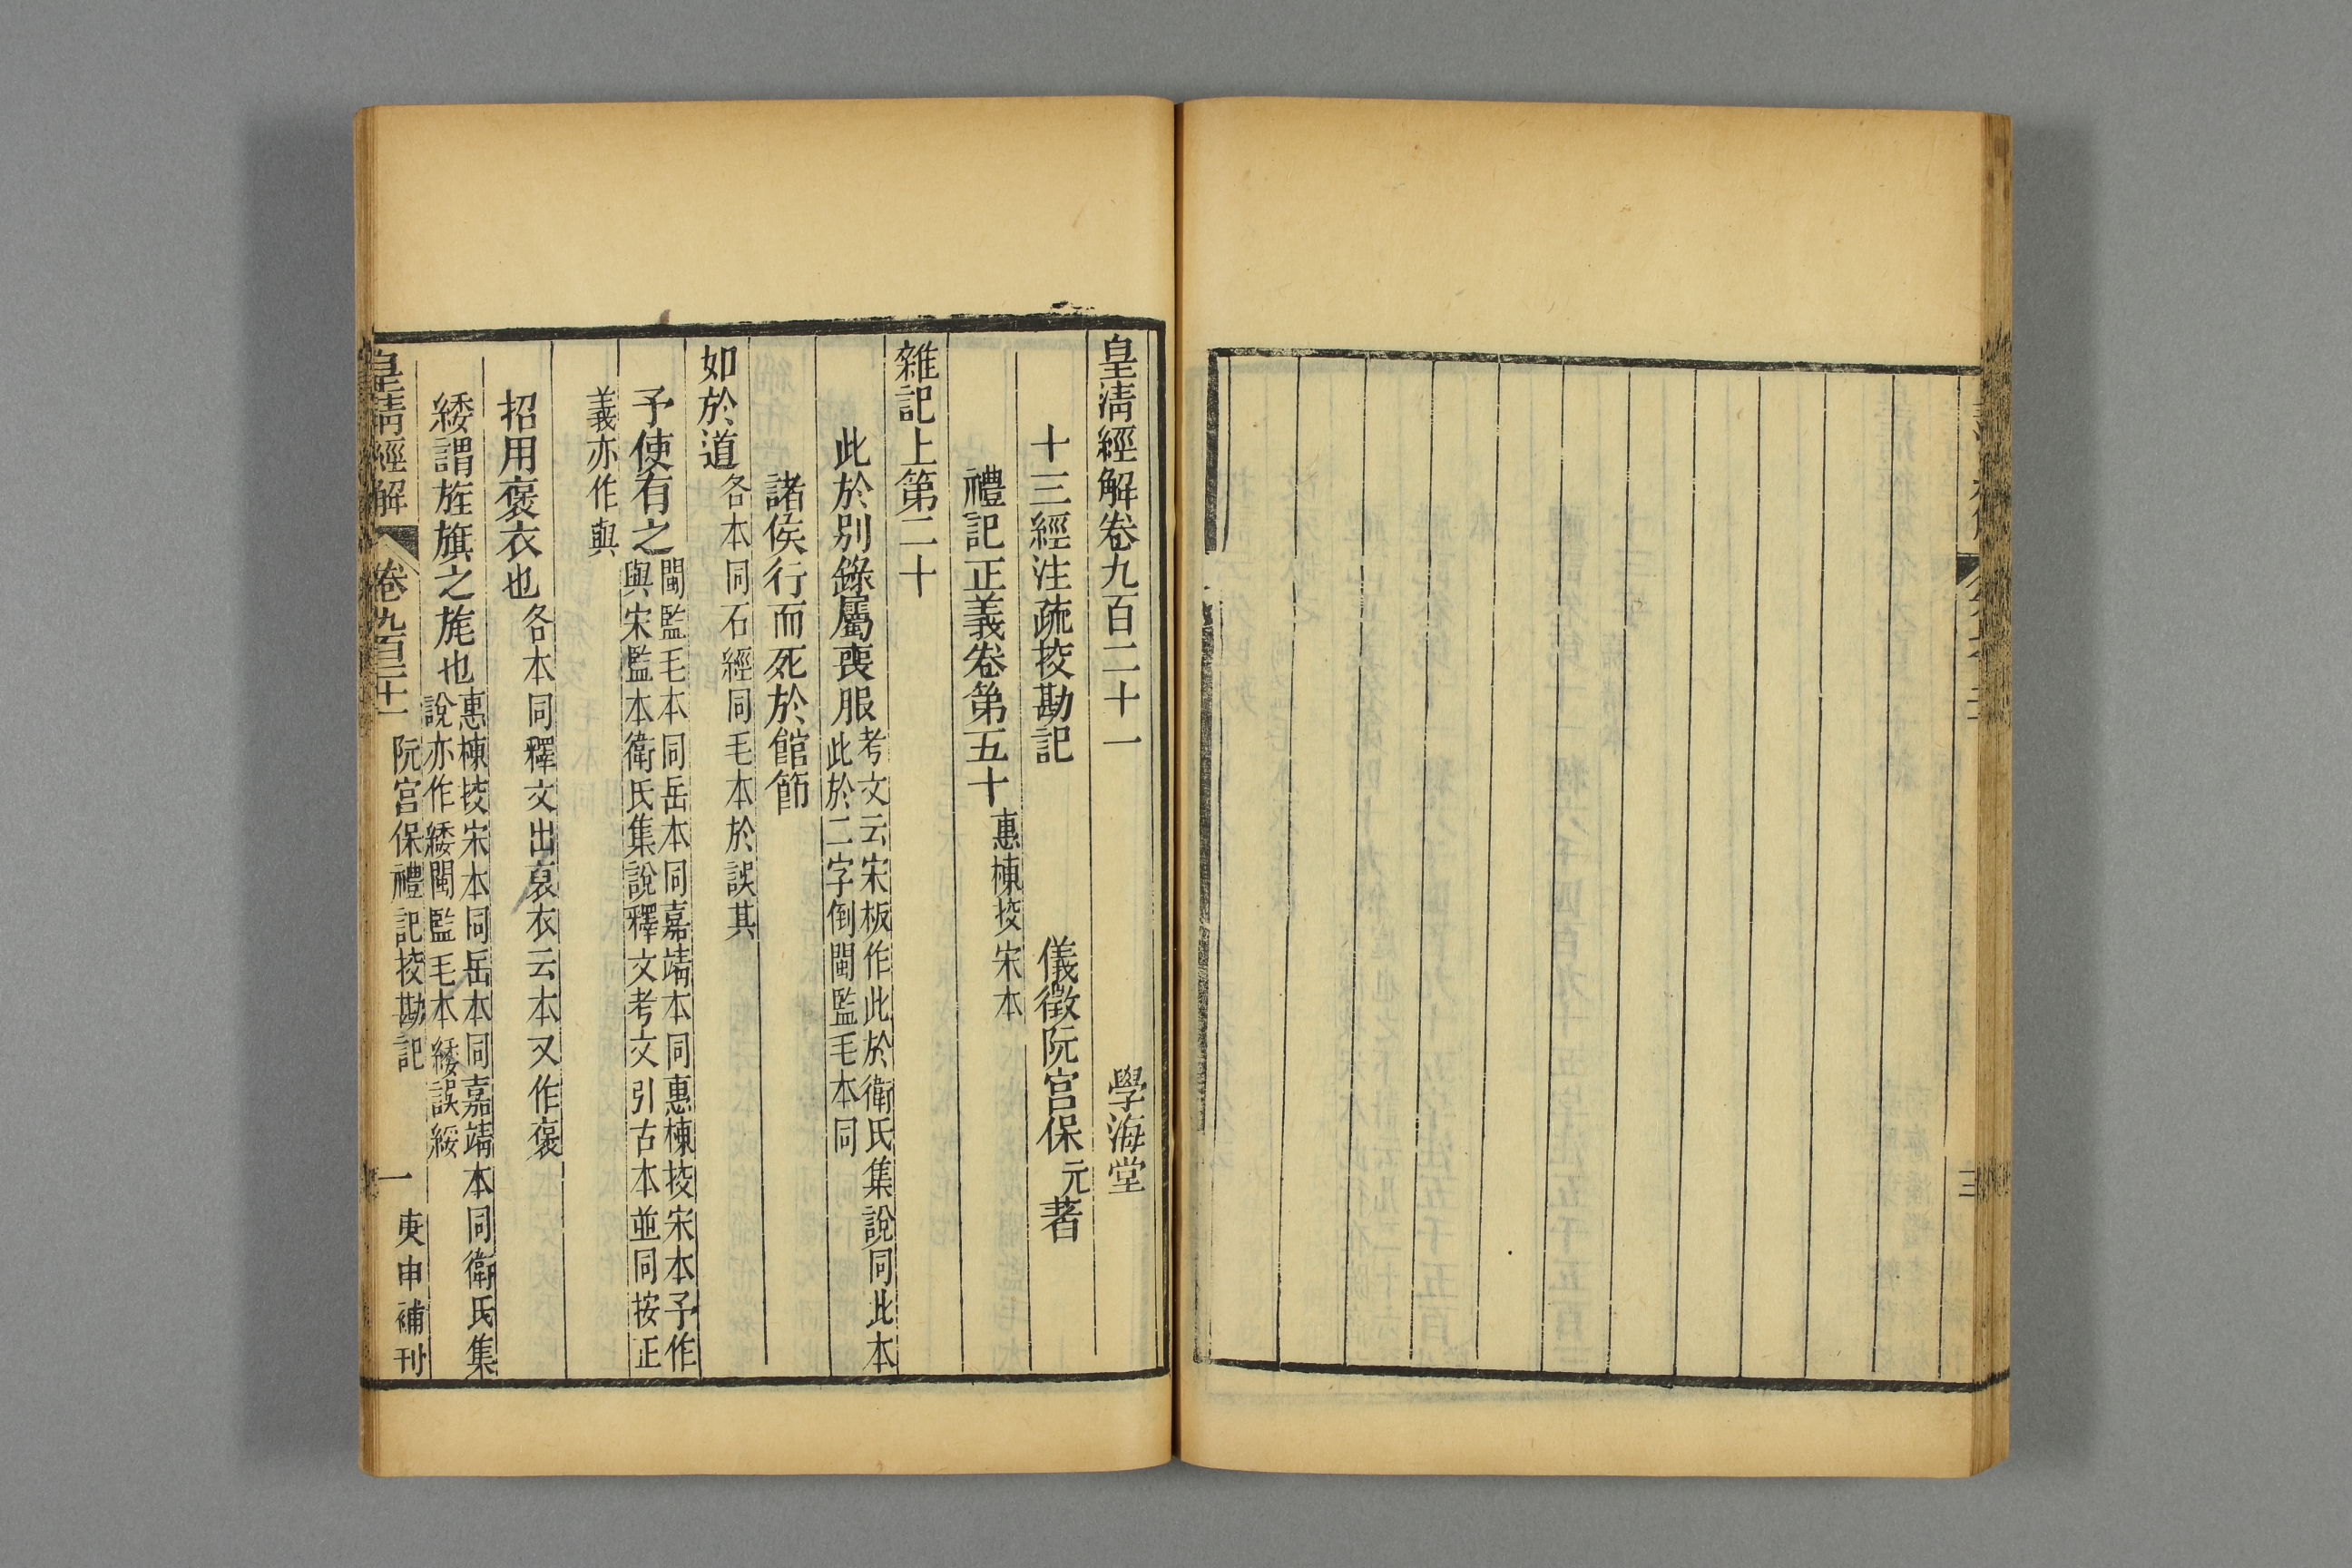 皇清經解卷九百二十一 學海堂
十三經注疏挍勘記 儀徵阮宮保元著
禮記正義卷第五十惠棟挍宋本
雜記上第二十
此於別錄屬喪服考文云宋板作此於衛氏集說同此本
此於二字倒閩監毛本同
諸侯行而死於館節
如於道各本同石經同毛本於誤其
予使有之閩監毛本同岳本同嘉靖本同惠棟挍宋本予作
與宋監本衛氏集說釋文考文引古本並同按正
義亦作與
招用褒衣也各本同釋文出裒衣云本又作褒
緌謂旌旗之旄也惠棟挍宋本同岳本同嘉靖本同衛氏集
說亦作緌閩監毛本緌誤綏
皇清經解 卷九百二十一 阮宮保禮記挍勘記 一 庚申補刊
三